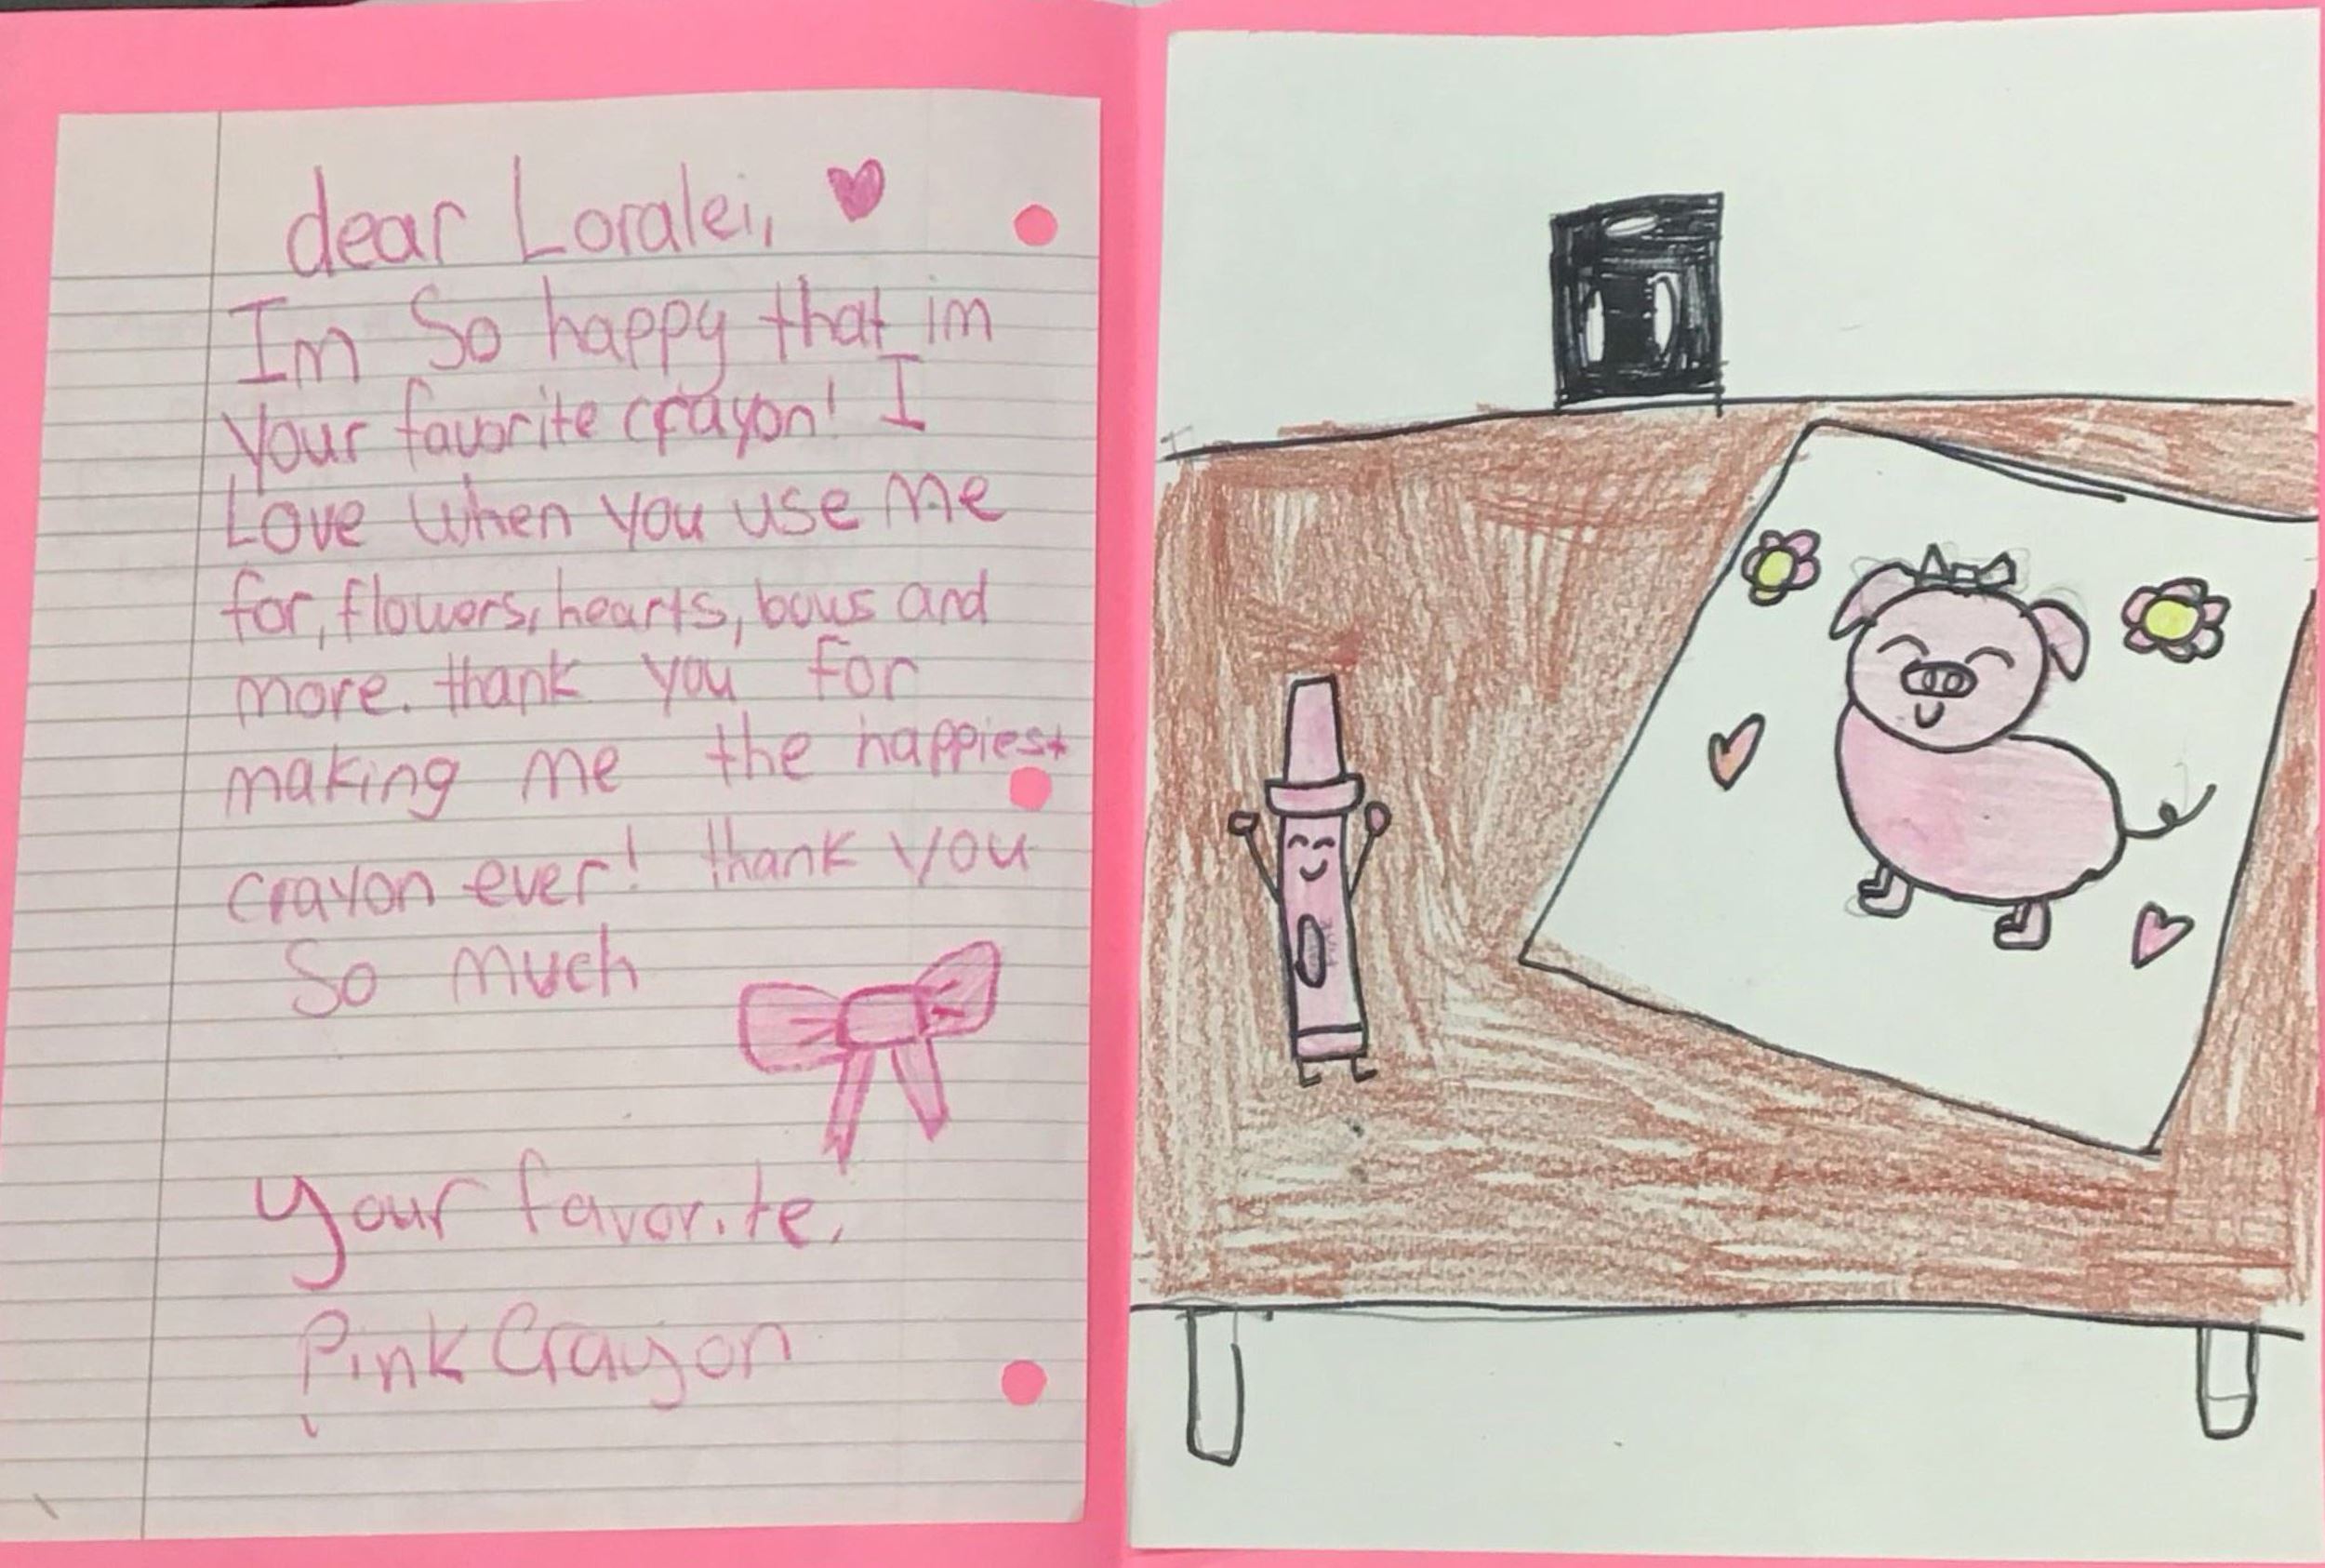 dear Loralei,
Im So happy that im
your favorite crayon! I
Love when you use me
for, flowers, hearts, bows and
more. thank you for
making me the happiest
crayon ever! thank you
So much
your favorite,
Pink Crayon